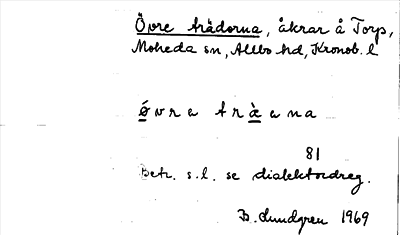 Övre trädorna, åkrar å Torp,
Moheda sn, Allbo hd, Kronob. l
ǿvra træ̀ana
81
Betr. s.l. se dialektordreg.
B. Lundgren 1969